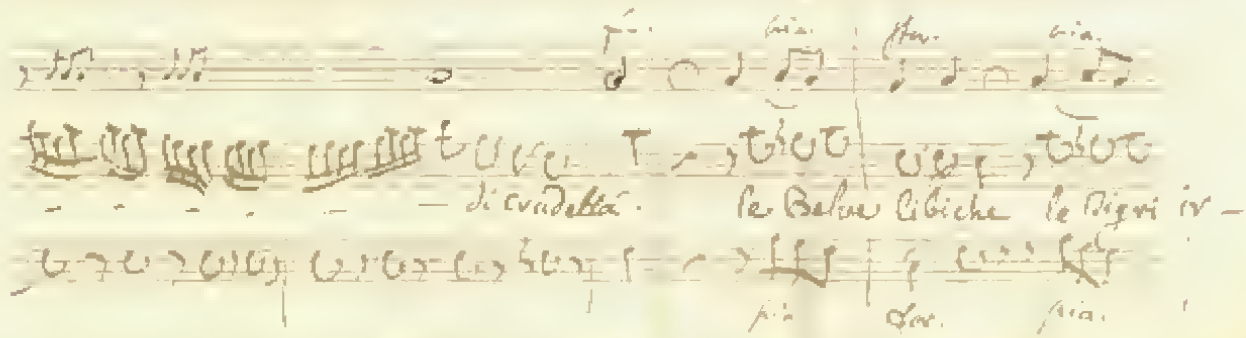 for. pia. for. pia.
di crudeltá. le Belve libiche le Tigri ir-
pia for. pia.